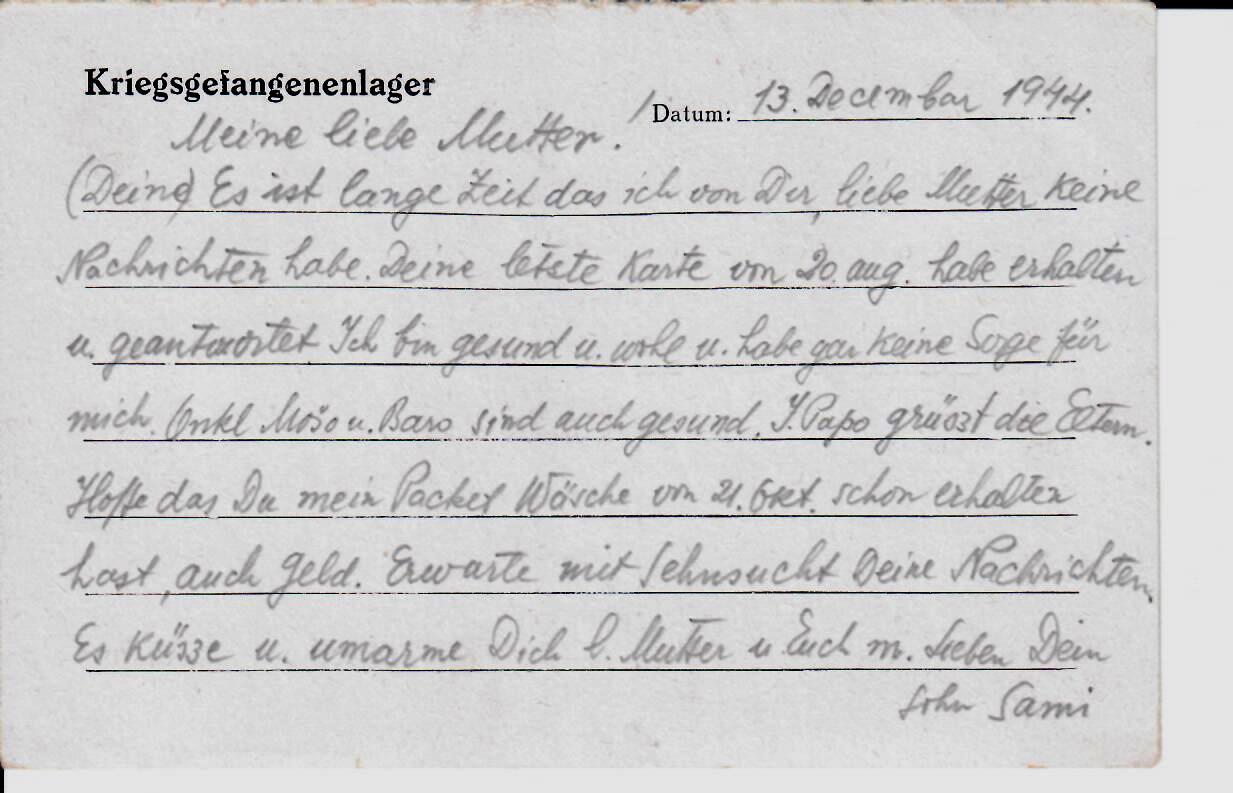 Kriegsgefangenenlager
Datum: 13. Decembar 1944.
Meine liebe Mutter.
(Deine) Es ist lange Zeit das ich von Dir, liebe Mutter keine
Nachrichten habe. Deine letste Karte von 20. aug. habe erhalten
u. geantwortet Ich bin gesund u. wohl u. habe gar keine Sorge für
mich. Onkl Mošo u. Baro sind auch gesund. J. Papo grüszt die Eltern.
Hoffe das Du mein Packet Wäsche von 21. Okt. schon erhalten
hast, auch Geld. Erwarte mit Sehnsucht Deine Nachrichten.
Es küsze u. umarme Dich l. Mutter u Euch m. Lieben Dein
Sohn Sami